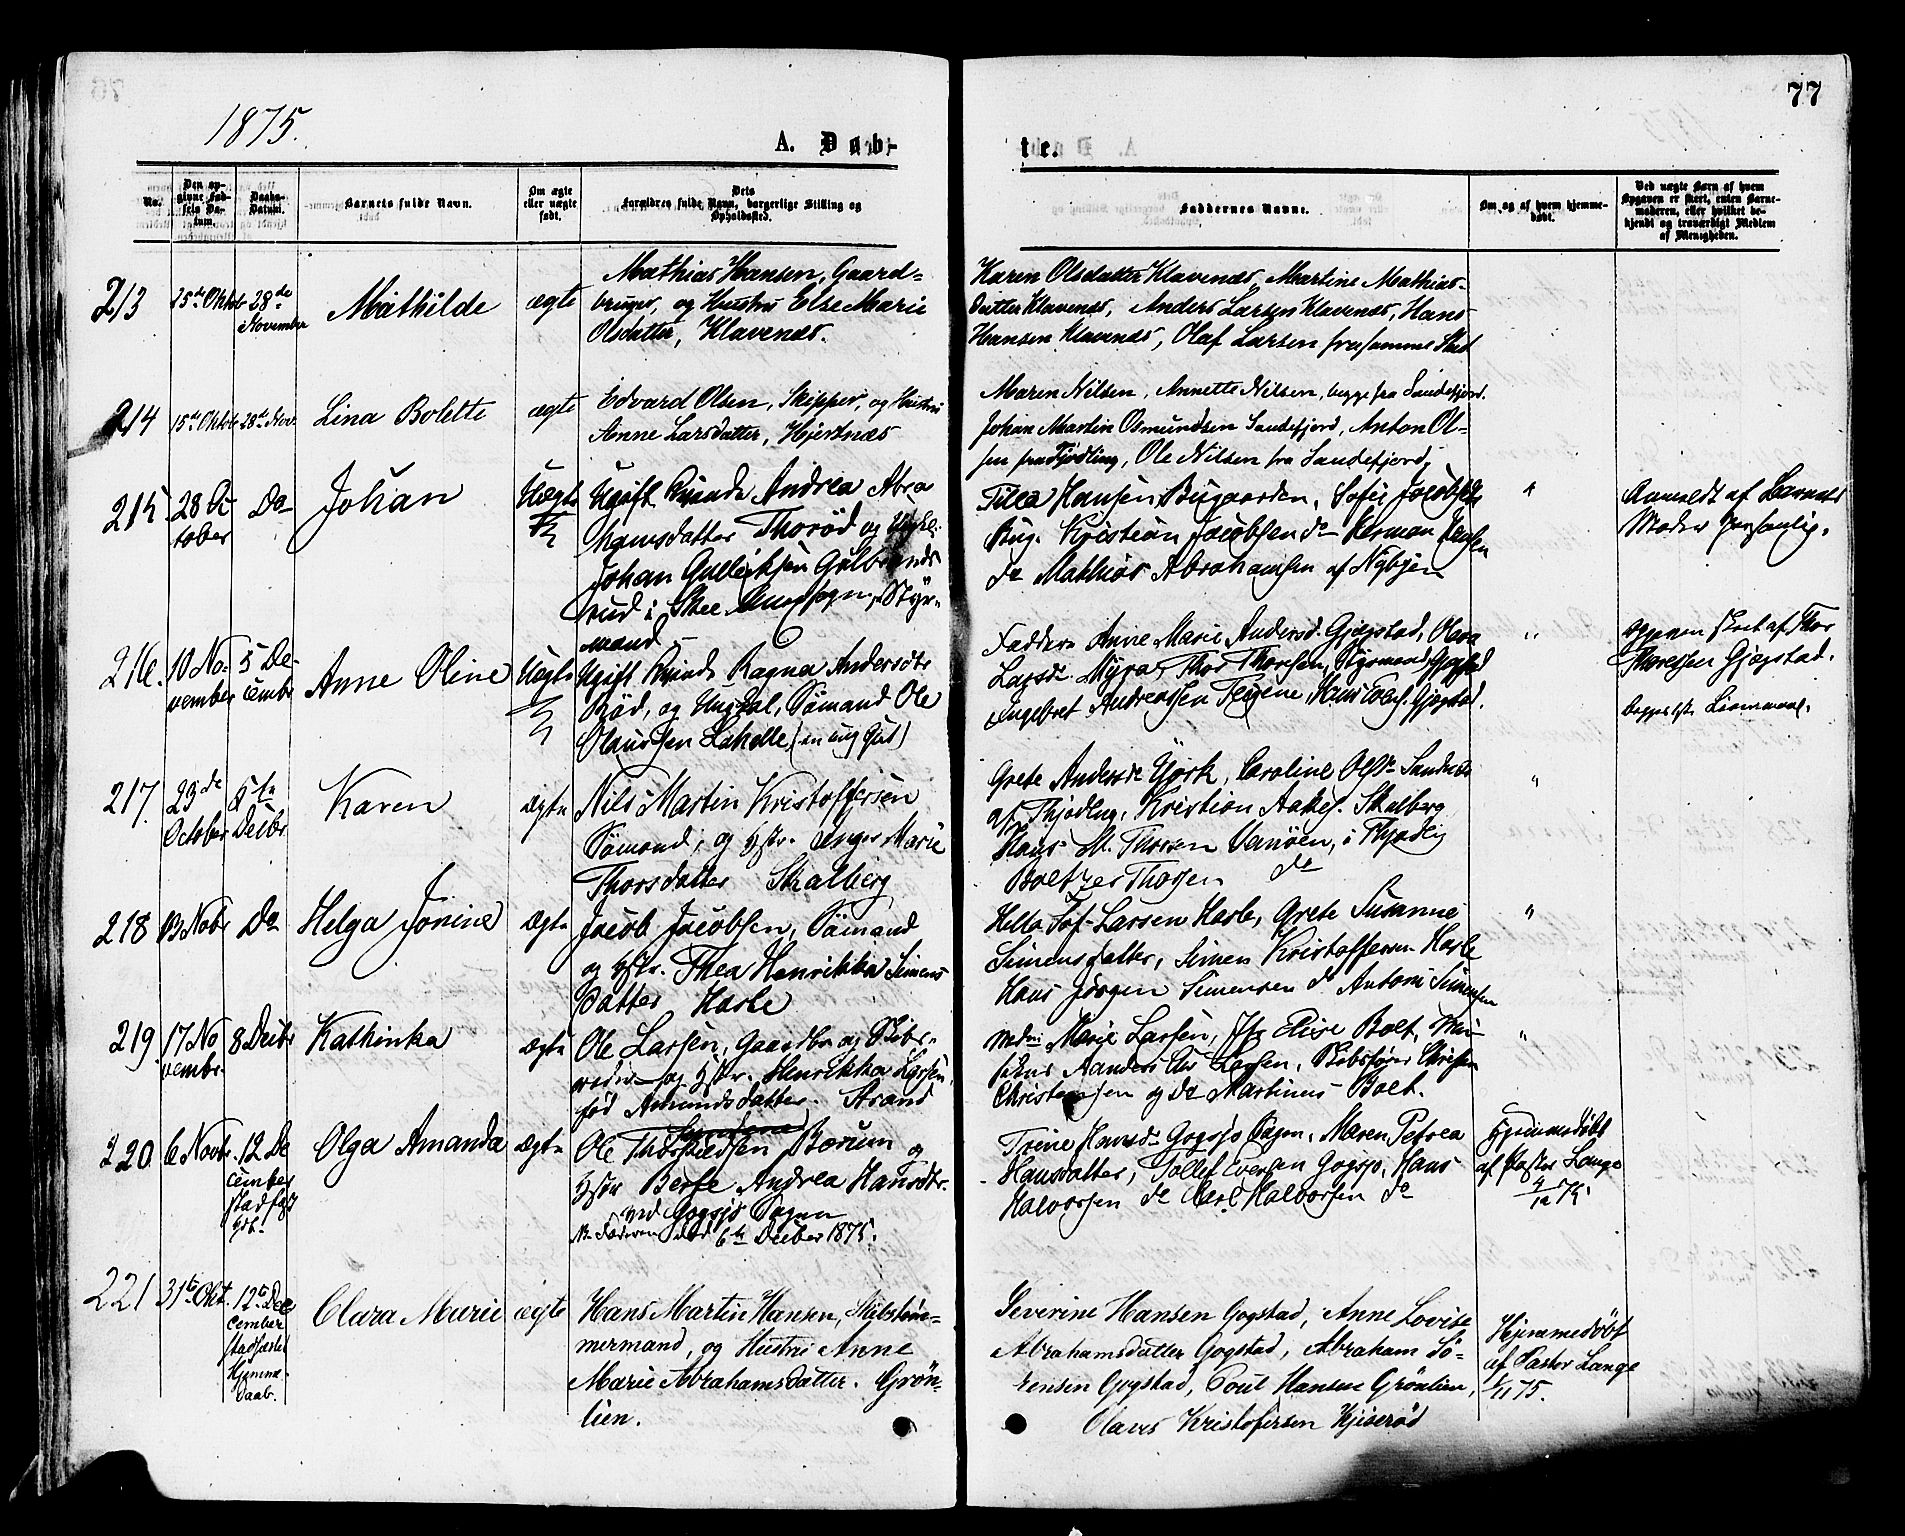 77
1875.
A. Døb-
te.
No.
Den op-
givne Fød-
sels Da-
tum.
Daabs-
Datum.
Barnets fulde Navn.
Om ægte
eller uægte
født.
Dets
Forældres fulde Navn, borgerlige Stilling og
Opholdssted.
Faddernes Navne.
Om og af hvem hjemme-
døbt.
Ved uægte Børn af hvem
Opgaven er skeet, enten Barne-
moderen, eller hvilket be-
kjendt og troværdigt Medlem
af Menigheden.
213
25de Oktob
28de
November
Mathilde
ægte
Mathias Hansen, Gaard-
bruger, og Hustru Else Marie
Olsdatter, Klavenæs.
Karen Olsdatter Klavenæs, Martine Mathias-
datter Klavenæs, Anders Larsen Klavenæs, Hans
Hansen Klavenæs, Olaf Larsen fra samme Sted
214
15de Oktob
28de Nov.
Lina Bolette
ægte
Edvard Olsen, Skipper, og Hustru
Anne Larsdatter, Hjertnæs
Maren Nilsen, Annette Nilsen, begge fra Sandefjord.
Johan Martin Osmundsen Sandefjord, Anton Ol-
sen fra Fjødling, Ole Nilsen fra Sandefjord.
215
28 Oc
tober
Do
Johan
Uægte
Ugift Kvinde Andrea Abra
hamsdatter Thorød og Ungkl.
Johan Gulliksen Gulbrands
rud i Skee Annexsogn, Styr-
mand
Tilla Hansen Bugaarden, Sofie Jacobsen
Bug. Kristian Jacobsen do Herman Hansen
do Mathias Abrahamsen af Nybyen
"
Anmeldt af Barnets
Moder personlig.
216.
10 No-
vember
5 De-
cembr
Anne Oline
Uægte
Ugift Kvinde Ragna Andersdtr
Rød, og Ungkal, Sømand Ole
Olaussen Lahelle, (en ung Gut)
Faddere Anne Marie Andersd. Gjøgstad, Olava
Larsd. Myra, Thor Thorsen, Styrmand Gjøgstad
Ingebret Andreassen
"
Opgaven skeet af Thor
Thoressen Gjøgstad.
217.
23de
October
5te
Decbr.
Karen
ægte
Nils Martin Kristoffersen
Sømand, og Hstr. Inger Marie
Thorsdatter Skalberg
Grete Andersdr Kjørk, Caroline Olsdr
af Thjødling, Kristian Skalberg
Hans M. Thorsen Vanøen, i Thjødling
Thorsen do
"
218
13 Novbr
Do
Helga Jonine
ægte
Jacob Jacobsen, Sømand
og Hstr. Thea Henrikka Simens
datter Hasle
Larsen Hasle, Grete Susanne
Simensdatter, Simen Kristoffersen Hasle
Hans Jørgen Simensen do Antoni Simensen
"
219
17 No
vembr.
8 Decbr
Kathinka
ægte
Ole Larsen, Gaardbr og Skibs-
reder og Hstr. Henrikka Larsen,
fød Amundsdatter. Strand
Marie Larsen, Jfr Elise Bolt,
Larsen, Skibsfører Christen
Christensen og do Martinus Bolt.
"
220
6 Novbr.
12 De
cember
stadfæst
Olga Amanda
ægte
Ole Borum og
Hstr Berthe Andrea Hansdtr.
ved Gogsjø Sagen
NB Faderen død 6te Decbr 1875.
Trine Hansd. Gogsjø Sagen, Maren Petrea
Hansdatter, Tollef Iversen Gogsjø, Hans
Halvorsen do Carl Halvorsen do
Hjemmedøbt
af Pastor Lange
4/12 75
221
31te Okt.
12te De
cember
stadfæstet
Hjemme-
daab.
Clara Marie
ægte
Hans Martin Hansen, Skibstøm-
mermand, og Hustru Anne
Marie Abrahamsdatter. Grøn-
lien.
Severine Hansen Gogstad, Anne Lovise
Abrahamsdatter Gogstad, Abraham Sø-
rensen Gogstad, Poul Hansen Grønlien,
Olaves Kristofersen Kjiserød
Hjemmedøbt
af Pastor Lange
75.